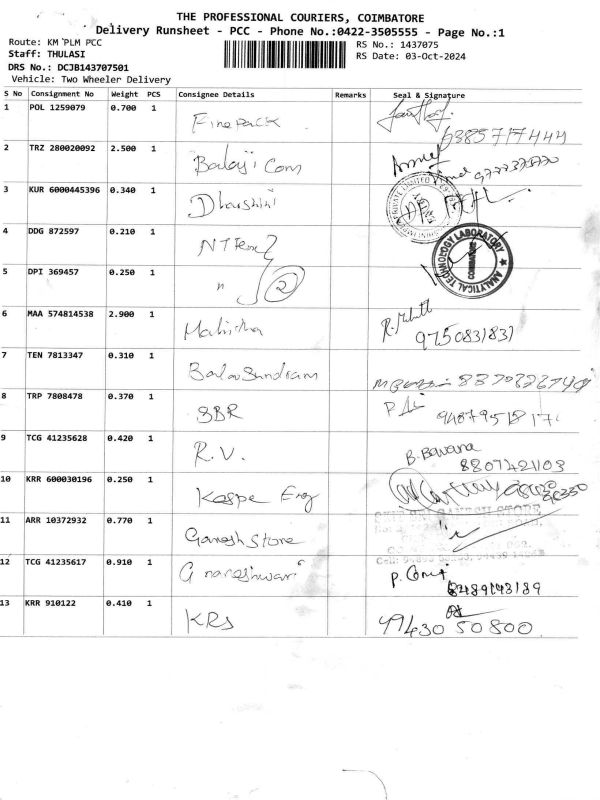 THE PROFESSIONAL COURIERS, COIMBATORE
Delivery Runsheet - PCC - Phone No.:0422-3505555 - Page No.:1
Route: KM PLM PCC
RS No.: 1437075
Staff: THULASI
RS Date: 03-Oct-2024
DRS No.: DCJB143707501
Vehicle: Two Wheeler Delivery
S No Consignment No Weight PCS Consignee Details Remarks Seal & Signature
1 POL 1259079 0.700 1 Finepack 6385717444
2 TRZ 280020092 2.500 1 Balaji Com
3 KUR 6000445396 0.340 1 Dharshini
4 DDG 872597 0.210 1
ANALYTICAL TECHNOLOGY LABORATORY
COIMBATORE
5 DPI 369457 0.250 1 2
6 MAA 574814538 2.900 1 9750831837
7 TEN 7813347 0.310 1 Bala Sundram
8 TRP 7808478 0.370 1 SBR
9 TCG 41235628 0.420 1 R.V. B. Bavana
8807421103
10 KRR 600030196 0.250 1
11 ARR 10372932 0.770 1 Ganesh Store
12 TCG 41235617 0.910 1 G nareshwari
13 KRR 910122 0.410 1 KRS 99430 50800